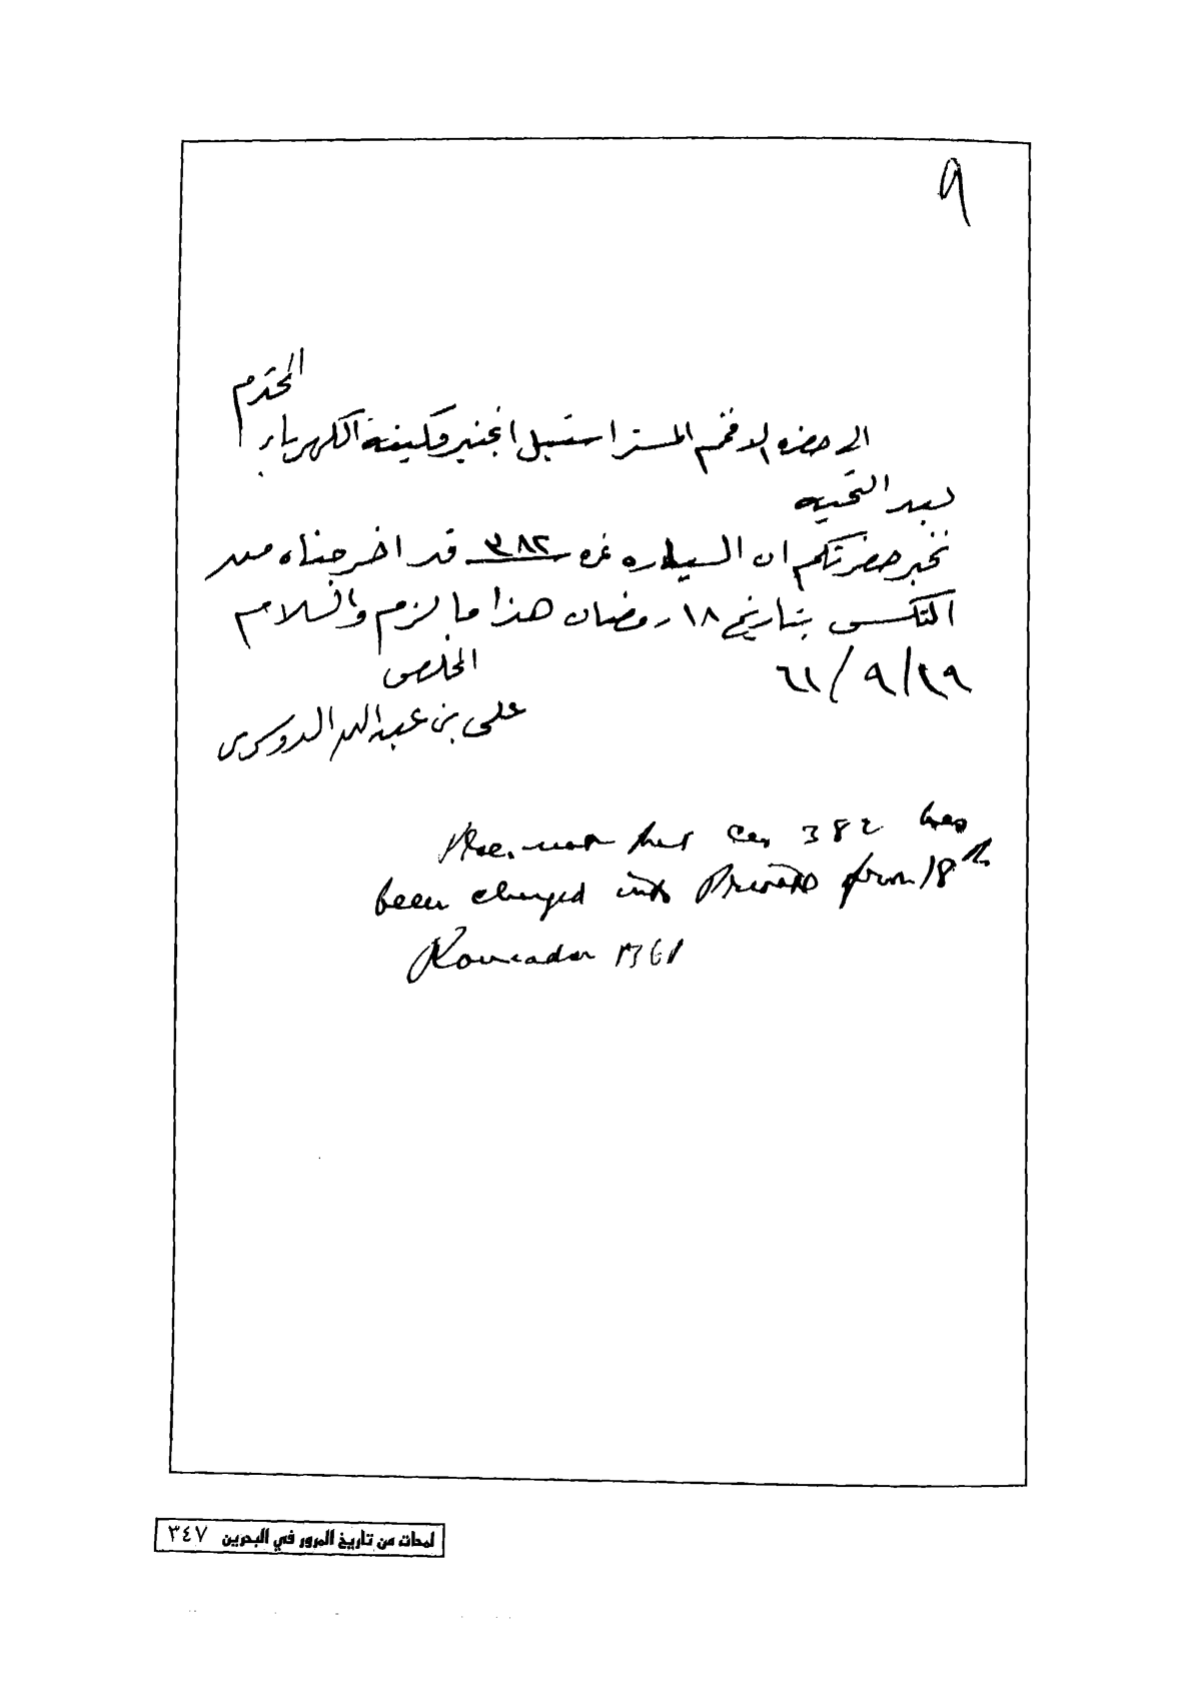 ٩
المحترم
الى حضرة الافخم المستر استيل انجنير مكينة الكهرباء
بعد التحيه
نخبر حضرتكم ان السياره نمره ٣٨٢ قد اخرجناه من
التكسي بتاريخ ١٨ رمضان هذا ما لزم والسلام
١٩/٩/٦١
المخلص
علي بن عبدالله الدوسري
Please note that Car 382 has
been changed into Private from 18th
Ramadan 1361
لمحات من تاريخ المرور في البحرين ٣٤٧